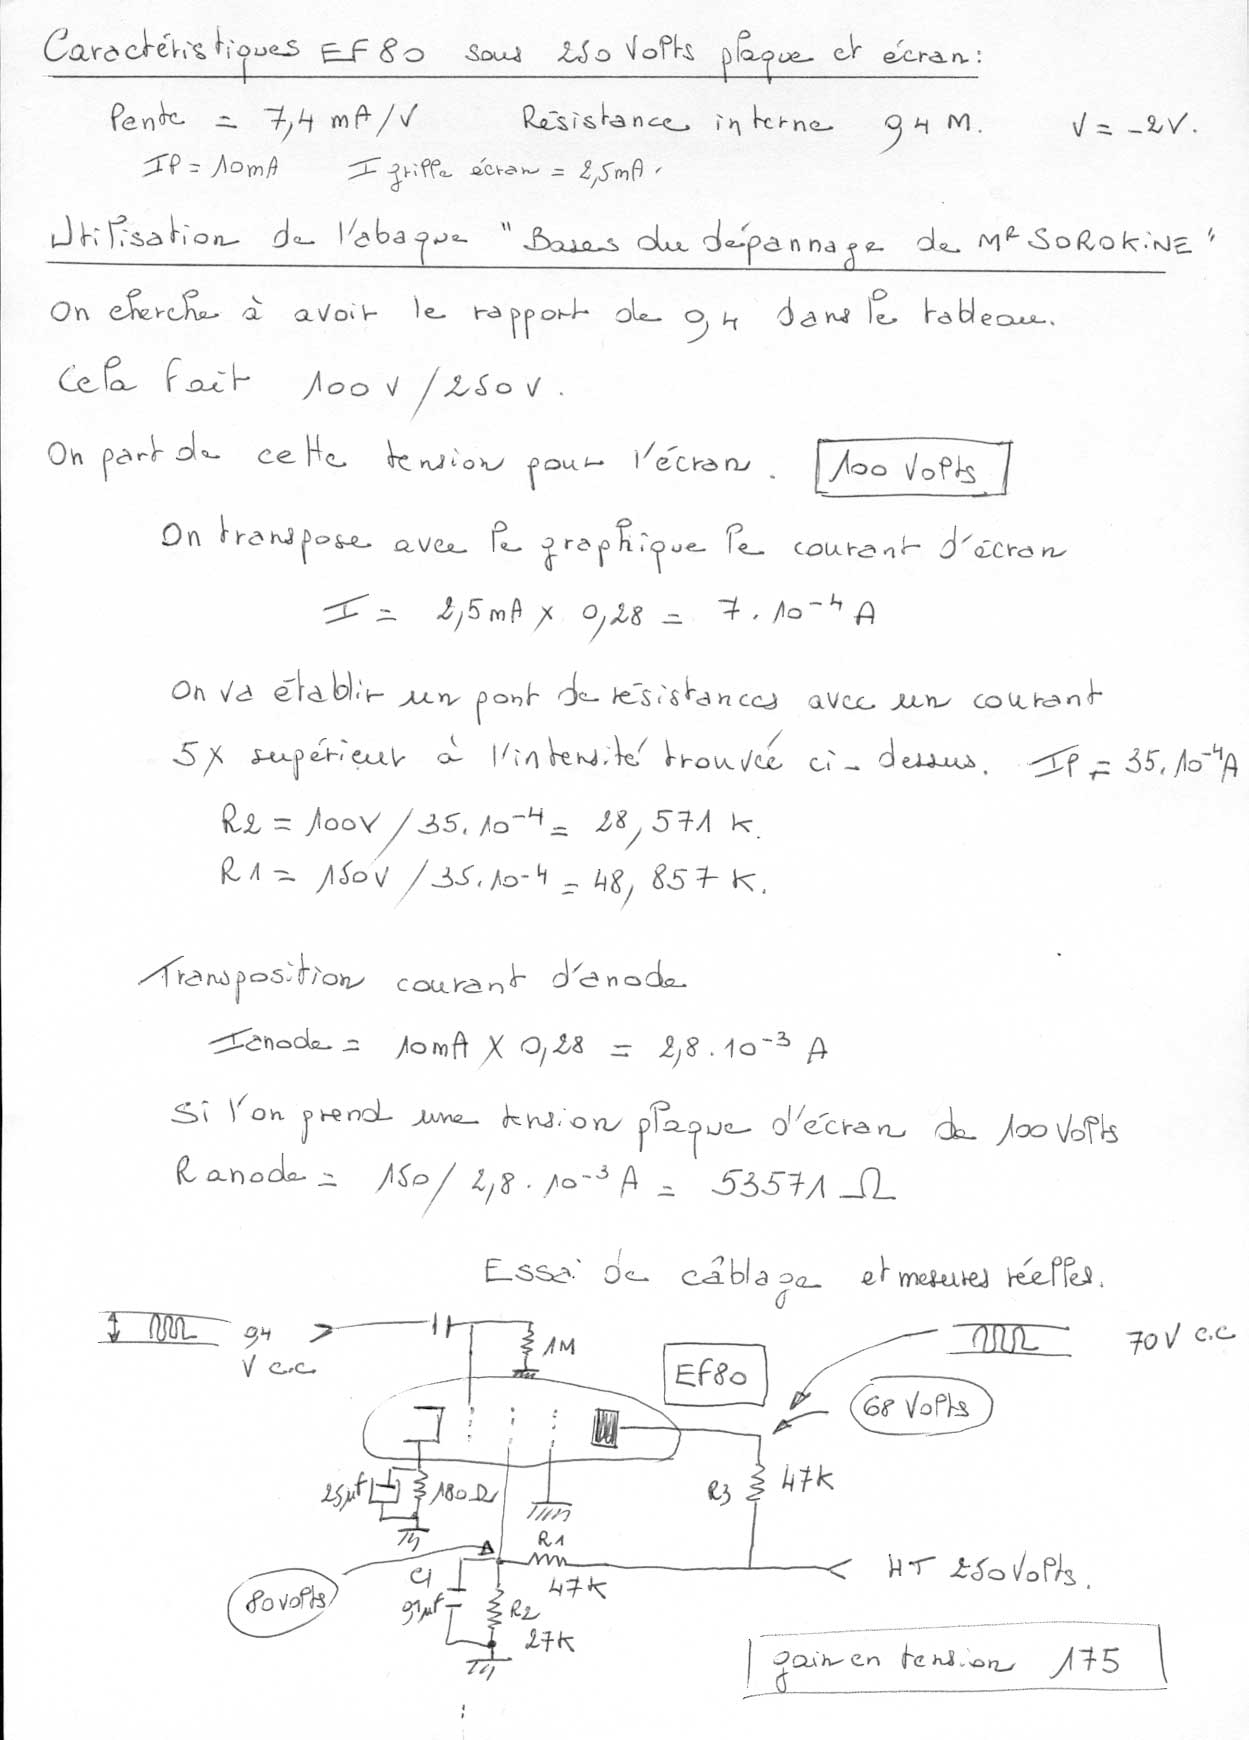 Caractéristiques EF80 sous 250 Volts plaque et écran:
Pente = 7,4 mA/V Résistance interne 0,4 M. V = -2V.
IP = 10mA I grille écran = 2,5mA.
Utilisation de l'abaque "Bases du dépannage de MR SOROKINE"
On cherche à avoir le rapport de 0,4 dans le tableau.
Cela fait 100 V / 250 V.
On part de cette tension pour l'écran. 100 Volts
On transpose avec le graphique le courant d'écran
I = 2,5 mA x 0,28 = 7. 10-4 A
On va établir un pont de résistances avec un courant
5X supérieur à l'intensité trouvée ci-dessus. IP = 35. 10-4A
R2 = 100V / 35. 10-4 = 28, 571 K.
R1 = 150V / 35. 10-4 = 48, 857 K.
Transposition courant d'anode
I anode = 10mA X 0,28 = 2,8 . 10-3 A
Si l'on prend une tension plaque d'écran de 100 Volts
R anode = 150 / 2,8 . 10-3 A = 53571 Ω
Essai de câblage et mesures réelles.
0,4 V c.c. 1M EF80 70V c.c
68 Volts
25µf 180Ω R3 47K
R1 47K HT 250 Volts.
80 volts C1 0,1µf R2 27K
gain en tension 175